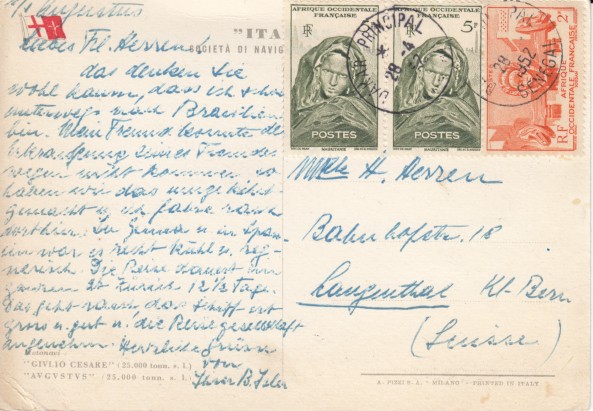 a/s Augustus
"ITA
SOCIETÀ DI NAVIG
Liebes Frl. Herren!
das denken Sie
wohl kaum, dass ich schon
unterwegs nach Brasilien
bin. Mein Freund konnte
Erkrankung seines Fremden
wegen nicht kommen, so
haben wir das umgekehrt
gemacht u. ich fahre rasch
dorthin. In Genua u. in Span-
ien war es recht kühl u. reg-
nerisch. Die Reise dauert im
ganzen ab Zürich 12½ Tage.
Das geht rasch, das Schiff ist
gross u. gut u. die Reisegesellschaft
angenehm. Herzliche Grüsse
von
Ihrer B. Isler
"GIVLIO CESARE" (25.000 tonn. s. l.)
"AVGVSTVS" (25.000 tonn. s. l.)
AFRIQUE OCCIDENTALE
FRANÇAISE
RF
POSTES
MAURITANIE
AFRIQUE OCCIDENTALE
FRANÇAISE
5F
POSTES
MAURITANIE
2F
AFRIQUE
OCCIDENTALE FRANÇAISE
RF
DAKAR PRINCIPAL
28-4
28
1952
SENEGAL
Mlle H. Herren
Bahnhofstr. 18
Langenthal Kt. Bern
(Suisse)
A. PIZZI S. A. - MILANO - PRINTED IN ITALY